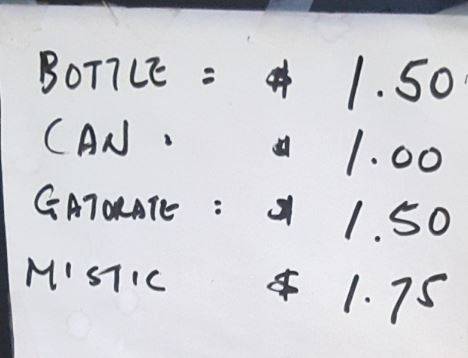 BOTTLE = $ 1.50
CAN . $ 1.00
GATORATE : $ 1.50
MISTIC $ 1.75